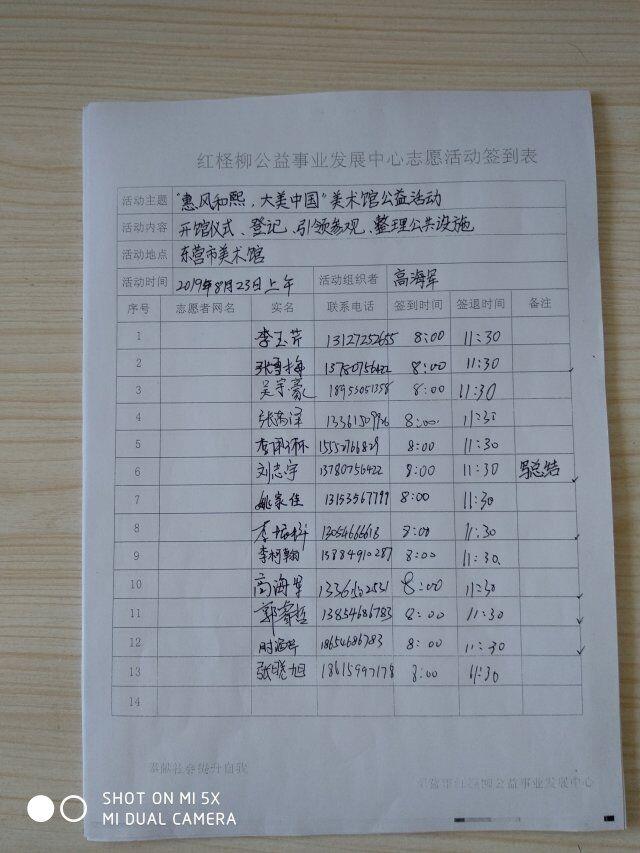 红柽柳公益事业发展中心志愿活动签到表
活动主题 "惠风和熙,大美中国"美术馆公益活动
活动内容 开馆仪式、登记、引领参观、整理公共设施
活动地点 东营市美术馆
活动时间 2019年8月23日上午 活动组织者 高海军
序号 志愿者网名 实名 联系电话 签到时间 签退时间 备注
1 李玉芹 13127252655 8:00 11:30
2 张雪梅 13780756422 8:00 11:30
3 吴宇豪 18953051358 8:00 11:30
4 8:00 11:30
5 8:00 11:30
6 刘志宇 13780756422 8:00 11:30 写总结
7 姚家佳 13153567799 8:00 11:30
8 13054666613 8:00 11:30
9 李柯翰 13884910287 8:00 11:30
10 高海军 8:00 11:30
11 郭睿哲 13854686783 8:00 11:30
12 18654686783 8:00 11:30
13 张晓旭 18615997178 8:00 11:30
14
奉献社会提升自我
东营市红柽柳公益事业发展中心
SHOT ON MI 5X
MI DUAL CAMERA